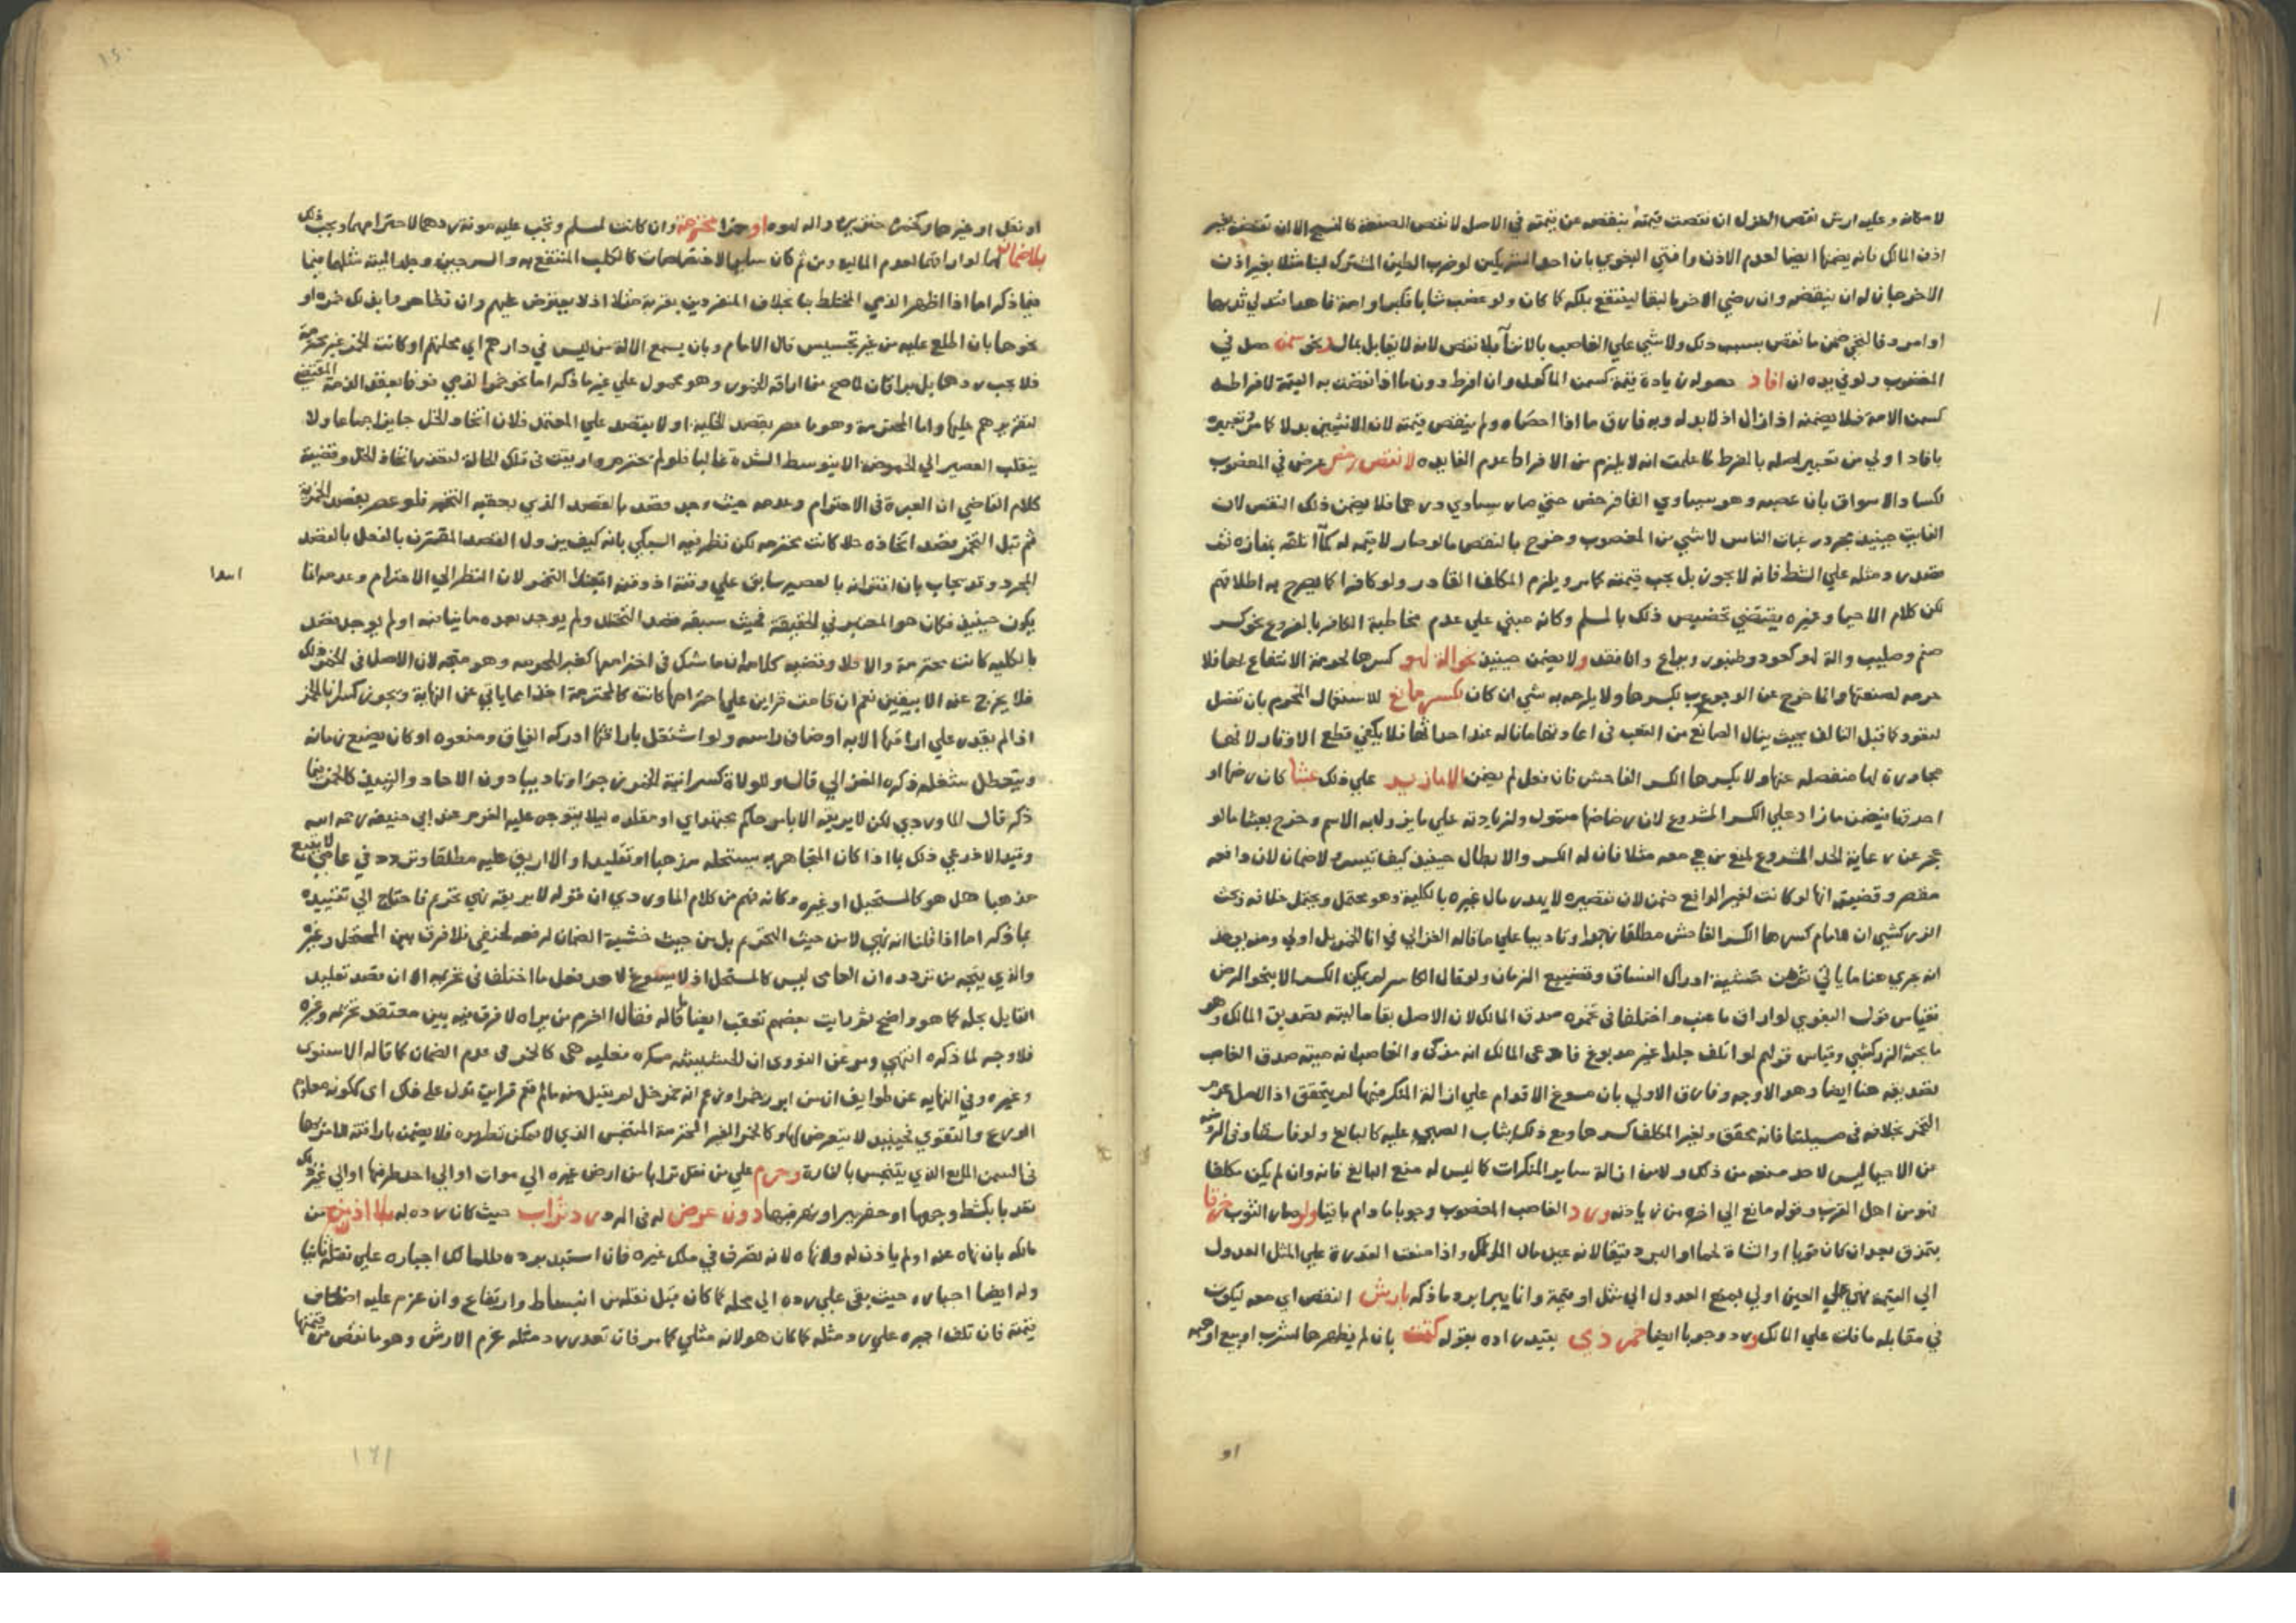 لا مكانه وعليه ارش نقص الغزل ان نقصت قيمته بنقص عن قيمته في الاصل لا نقص الصنعة كالنسج الا ان نقضه بغير
اذن المالك فانه يضمنها ايضا لعدم الاذن وافتي البغوي بان احد الشريكين لو ضرب الطين المشترك لبنا مثلا بغير اذن
الاخر جاز له ان ينقضه وان رضي الاخر بالبقا لينتفع بملكه كما كان ولو غصب شابا فكبر او امة ناهدا فتدلي ثديها
او امرد فالتحي ضمن ما نقص بسبب ذلك ولا شي علي الغاصب بالا نقص لانه لا يقابل بمال نحو سمن حصل في
المغصوب ولو في يده ان افاد حصوله زيادة قيمة كسمن الماكول وان افرط دون ما اذا نقصت به القيمة لافراطه
كسمن الامة فلا يضمنه اذا زال اذ لا بدل له وبه فارق ما اذا اخصاه ولم ينقص قيمته لان للانثيين بدلا كما مر وتعبيره
بافاد اولي من تعبير اصله بالمفرط كما علمت انه لا يلزم من الافراط عدم الفايده لا نقص رخص عرض في المغصوب
لكساد الاسواق بان غصبه وهو يساوي الفا فرخص حتي صار يساوي درهما فلا يضمن ذلك النقص لان
الفايت حينيذ مجرد رغبات الناس لا شي من المغصوب وخرج بالنقص ما لو صار لا قيمة له كما اتلفه بمفازه ثم
رد مثله علي الشط فانه لا يجوز بل يجب قيمته كما مر ويلزم المكلف القادر ولو كافرا كما يصرح به اطلاقهم
لكن كلام الاحيا وغيره يقتضي تخصيص ذلك بالمسلم وكانه مبني علي عدم مخاطبة الكافر بالفروع نحو كسر
صنم وصليب والة لهو كعود وطنبور ويراع وانا فقد ولا يضمن حينيذ نحو الة لهو كسرها لحرمة الانتفاع بها فلا
حرمه لصنعتها وانما خرج عن الوجوب بكسرها ولا يلزمه به شي ان كان بكسر مانع للاستعمال المحرم بان تفصل
لتعود كما قبل التالف بحيث ينال الصانع من التعب في اعادتها ما ناله عند احداثها فلا يكفي قطع الاوتار لانها
مجاورة لها منفصله عنها ولا يكسرها الكسر الفاحش فان فعل لم يضمن الا ما زيد علي ذلك عبثا كان رضها او
احرقها فيضمن ما زاد علي الكسر المشروع لان رضاضها متمول ولزيادته علي ما يزول به الاسم وخرج بعبثا ما لو
عجز عن رعاية الحد المشروع لمنع من هي معه مثلا فان له الكسر والابطال حينيذ كيف تيسر ولا ضمان لان دافعه
مقصر وقضيته انها لو كانت لغير الدافع ضمن لان تقصيره لا يهدر مال غيره بالكلية وهو محتمل ويحتمل خلافه وبحث
الزركشي ان للامام كسرها الكسر الفاحش مطلقا زجرا وتاديبا علي ما قاله الغزالي في انا الخمر بل اولي ومنه يوخذ
انه يجري هنا ما ياتي ثم من خشية ادراك الفساق وتضييع الزمان ولو قال الكاسر لم يمكن الكسر الا بنحو الرض
فقياس قول البغوي لو اراق ما عنب واختلفا في تخمره صدق المالك لان الاصل بقا ماليته تصديق المالك وهو
ما بحثه الزركشي وقياس قولهم لو اتلف جلدا غير مدبوغ فادعي المالك انه مذكي والغاصب انه ميتة صدق الغاصب
تصديقه هنا ايضا وهو الاوجه وفارق الاولي بان مسوغ الاقدام علي ازالة المنكر منها لم يتحقق اذ الاصل عدم
التخمر بخلافه في مسيلتنا فانه محقق ولغير المكلف كسرها ومع ذلك يثاب الصبي عليه كالبالغ ولو فاسقا وفي الروضه
عن الاحيا ليس لاحد منعه من ذلك ولا من ازالة ساير المنكرات كما ليس له منع البالغ فانه وان لم يكن مكلفا
فهو من اهل القرب وقوله مانع الي اخره من زيادته ورد الغاصب المغصوب وجوبا ما دام باقيا ولو صار الثوب خرقا
بتمزق بعد ان كان ثوبا او الشاة لحما او البر دقيقا لانه عين مال المالك واذا منعت القدرة علي المثل العدول
الي القيمة فهي علي العين اولي بمنع العدول الي مثل او قيمة وانما يبرا برد ما ذكر بارش النقص اي معه ليكون
في مقابله ما فات علي المالك ورد وجوبا ايضا خمر ذمي بقيد زاده بقوله كتمت بان لم يظهرها لشرب او بيع او هبه
او
او نقل او غيرها وكخمره خنزيره واله لهوه او خمرا محترمة وان كانت لمسلم وتجب عليه مونة ردهما لاحترامهما ويجب ذلك
بلا ضمان لهما لو اراقهما لعدم المالية ومن ثم كان ساير الاختصاصات كالكلب المنتفع به والسرجين وجلد الميتة مثلها فيما
فيما ذكر اما اذا اظهر الذمي المختلط بنا بخلاف المنفردين بقرية مثلا اذ لا يعترض عليهم وان تظاهروا بذلك خمره او
نحوها بان اطلع عليه من غير تجسيس قال الامام وبان يسمع الالة من ليس في دارهم اي محلتهم او كانت الخمر غير محترمة
فلا يجب ردها بل يراق كما صح من اراقة الخمور وهو محمول علي غير ما ذكر اما نحو خمر الذمي فوفا بعقد الذمة المقتضي
لتقريرهم عليها واما المحترمة وهو ما عصر بقصد الخلية او لا بقصد علي المعتمد فلان اتخاذ الخل جايز اجماعا ولا
ينقلب العصير الي الحموضة الا بتوسط الشدة غالبا فلو لم نحترم واريقت في تلك الحالة لتعذر اتخاذ الخل وقضية
كلام القاضي ان العبرة في الاحترام وعدمه حيث وجد قصد بالقصد الذي يعقبه التخمر فلو عصر بقصد الخمرية
ثم قبل التخمر بقصد اتخاذه خلا كانت محترمه لكن نظر فيه السبكي بانه كيف يزول القصد المقترن بالفعل بالقصد
المجرد وقد يجاب بان اقترانه بالعصير سابق علي وقته اذ وقته ابتدا التخمر لان النظر الي الاحترام وعدمه انما
ابتدا
يكون حينيذ فكان هو المعتبر في الحقيقة فحيث سبقه قصد التخلل ولم يوجد بعده ما ينافيه او لم يوجد قصد
بالكلية كانت محترمة والا فلا وقضيه كلامه ان ما شك في احترامها كغير المحترمه وهو متجه لان الاصل في الخمر ذلك
فلا يخرج عنه الا بيقين نعم ان قامت قراين علي احترامها كانت كالمحترمة اخذا مما ياتي عن النهاية ويجوز كسر انا الخمر
اذا لم يقدر علي اراقتها الا به او ضاق راسه ولو اشتغل باراقتها ادركه الفساق ومنعوه او كان يضيع زمانه
ويتعطل شغله ذكره الغزالي قال وللولاة كسر انية الخمور زجرا وتاديبا دون الاحاد والنبيذ كالخمر فيما
ذكر قال الماوردي لكن لا يريقه الا بامر حاكم مجتهد اي او مقلده ليلا يتوجه عليه الغرم عند ابي حنيفة رحمه الله
وقيد الاذرعي ذلك بما اذا كان المتجاهر به يستحله مذهبا او تقليدا والا اريق عليه مطلقا وتردد في عامي لا يتبع
مذهبا هل هو كالمستحل او غيره وكانه فهم من كلام الماوردي ان قوله لا يريقه نهي تحريم فاحتاج الي تقييده
بما ذكر اما اذا قلنا انه نهي لا من حيث التحريم بل من حيث خشية الضمان لرفعه لحنفي فلا فرق بين المستحل وغيره
والذي يتجه من تردده ان العامي ليس كالمستحل اذ لا يسوغ لاحد فعل ما اختلف في تحريمه الا ان قصد تقليد
القايل بحله كما هو واضح ثم رايت بعضهم تعقب ايضا ما قاله فقال الغرم من يراه لا فرق فيه بين معتقد تحريمه وغيره
فلا وجه لما ذكره انتهي ومر عن النووي ان الحشيشة مسكره فعليه هي كالخمر في عدم الضمان كما قاله الاسنوي
وغيره وفي النهايه عن طوايف ان من ابرز خمرا وزعم انه خمر خل لم يقبل منه ما لم تقم قراين تدل علي ذلك اي ككونه معلوم
الورع والتقوي فحينيذ لا يتعرض لها وكالخمر الغير المحترمة المتنجس الذي لا يمكن تطهيره فلا يضمن باراقته
في السمن المايع الذي يتنجس بالفارة وحرم علي من نقل ترابا من ارض غيره الي موات او الي احد طرفها او الي غير ذلك
تعديا بكشط وجهها او حفر بير او نهر فيها دون عوض له في الرد رد تراب حيث كان رده له بلا اذن من
مالكه بان نهاه عنه او لم ياذن له ولا نهاه لانه تصرف في ملك غيره فان استبد برده فللمالك اجباره علي نقله ثانيا
وله ايضا اجباره حيث بقي علي رده الي محله كما كان قبل نقله من انبساط وارتفاع وان غرم عليه اضعاف
قيمته فان تلف اجبره علي رد مثله كما كان هو لانه مثلي كما مر فان تعذر رد مثله غرم الارش وهو ما نقص من قيمتها
١٤١